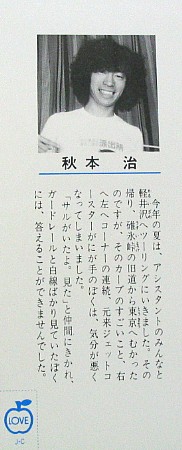 秋本 治
今年の夏は、アシスタントのみんなと
軽井沢へツーリングにいきました。その
かるいざわ
帰り、碓氷峠の旧道から東京へむかった
のですが、そのカーブのすごいこと、右
へ左へコーナーの連続、元来ジェットコ
ースターがにが手のぼくは、気分が悪く
なってしまいました。
「サルがいたよ。見た」と仲間にきかれ、
ガードレールと白線ばかり見ていたぼく
には、答えることができませんでした。
LOVE
J-C